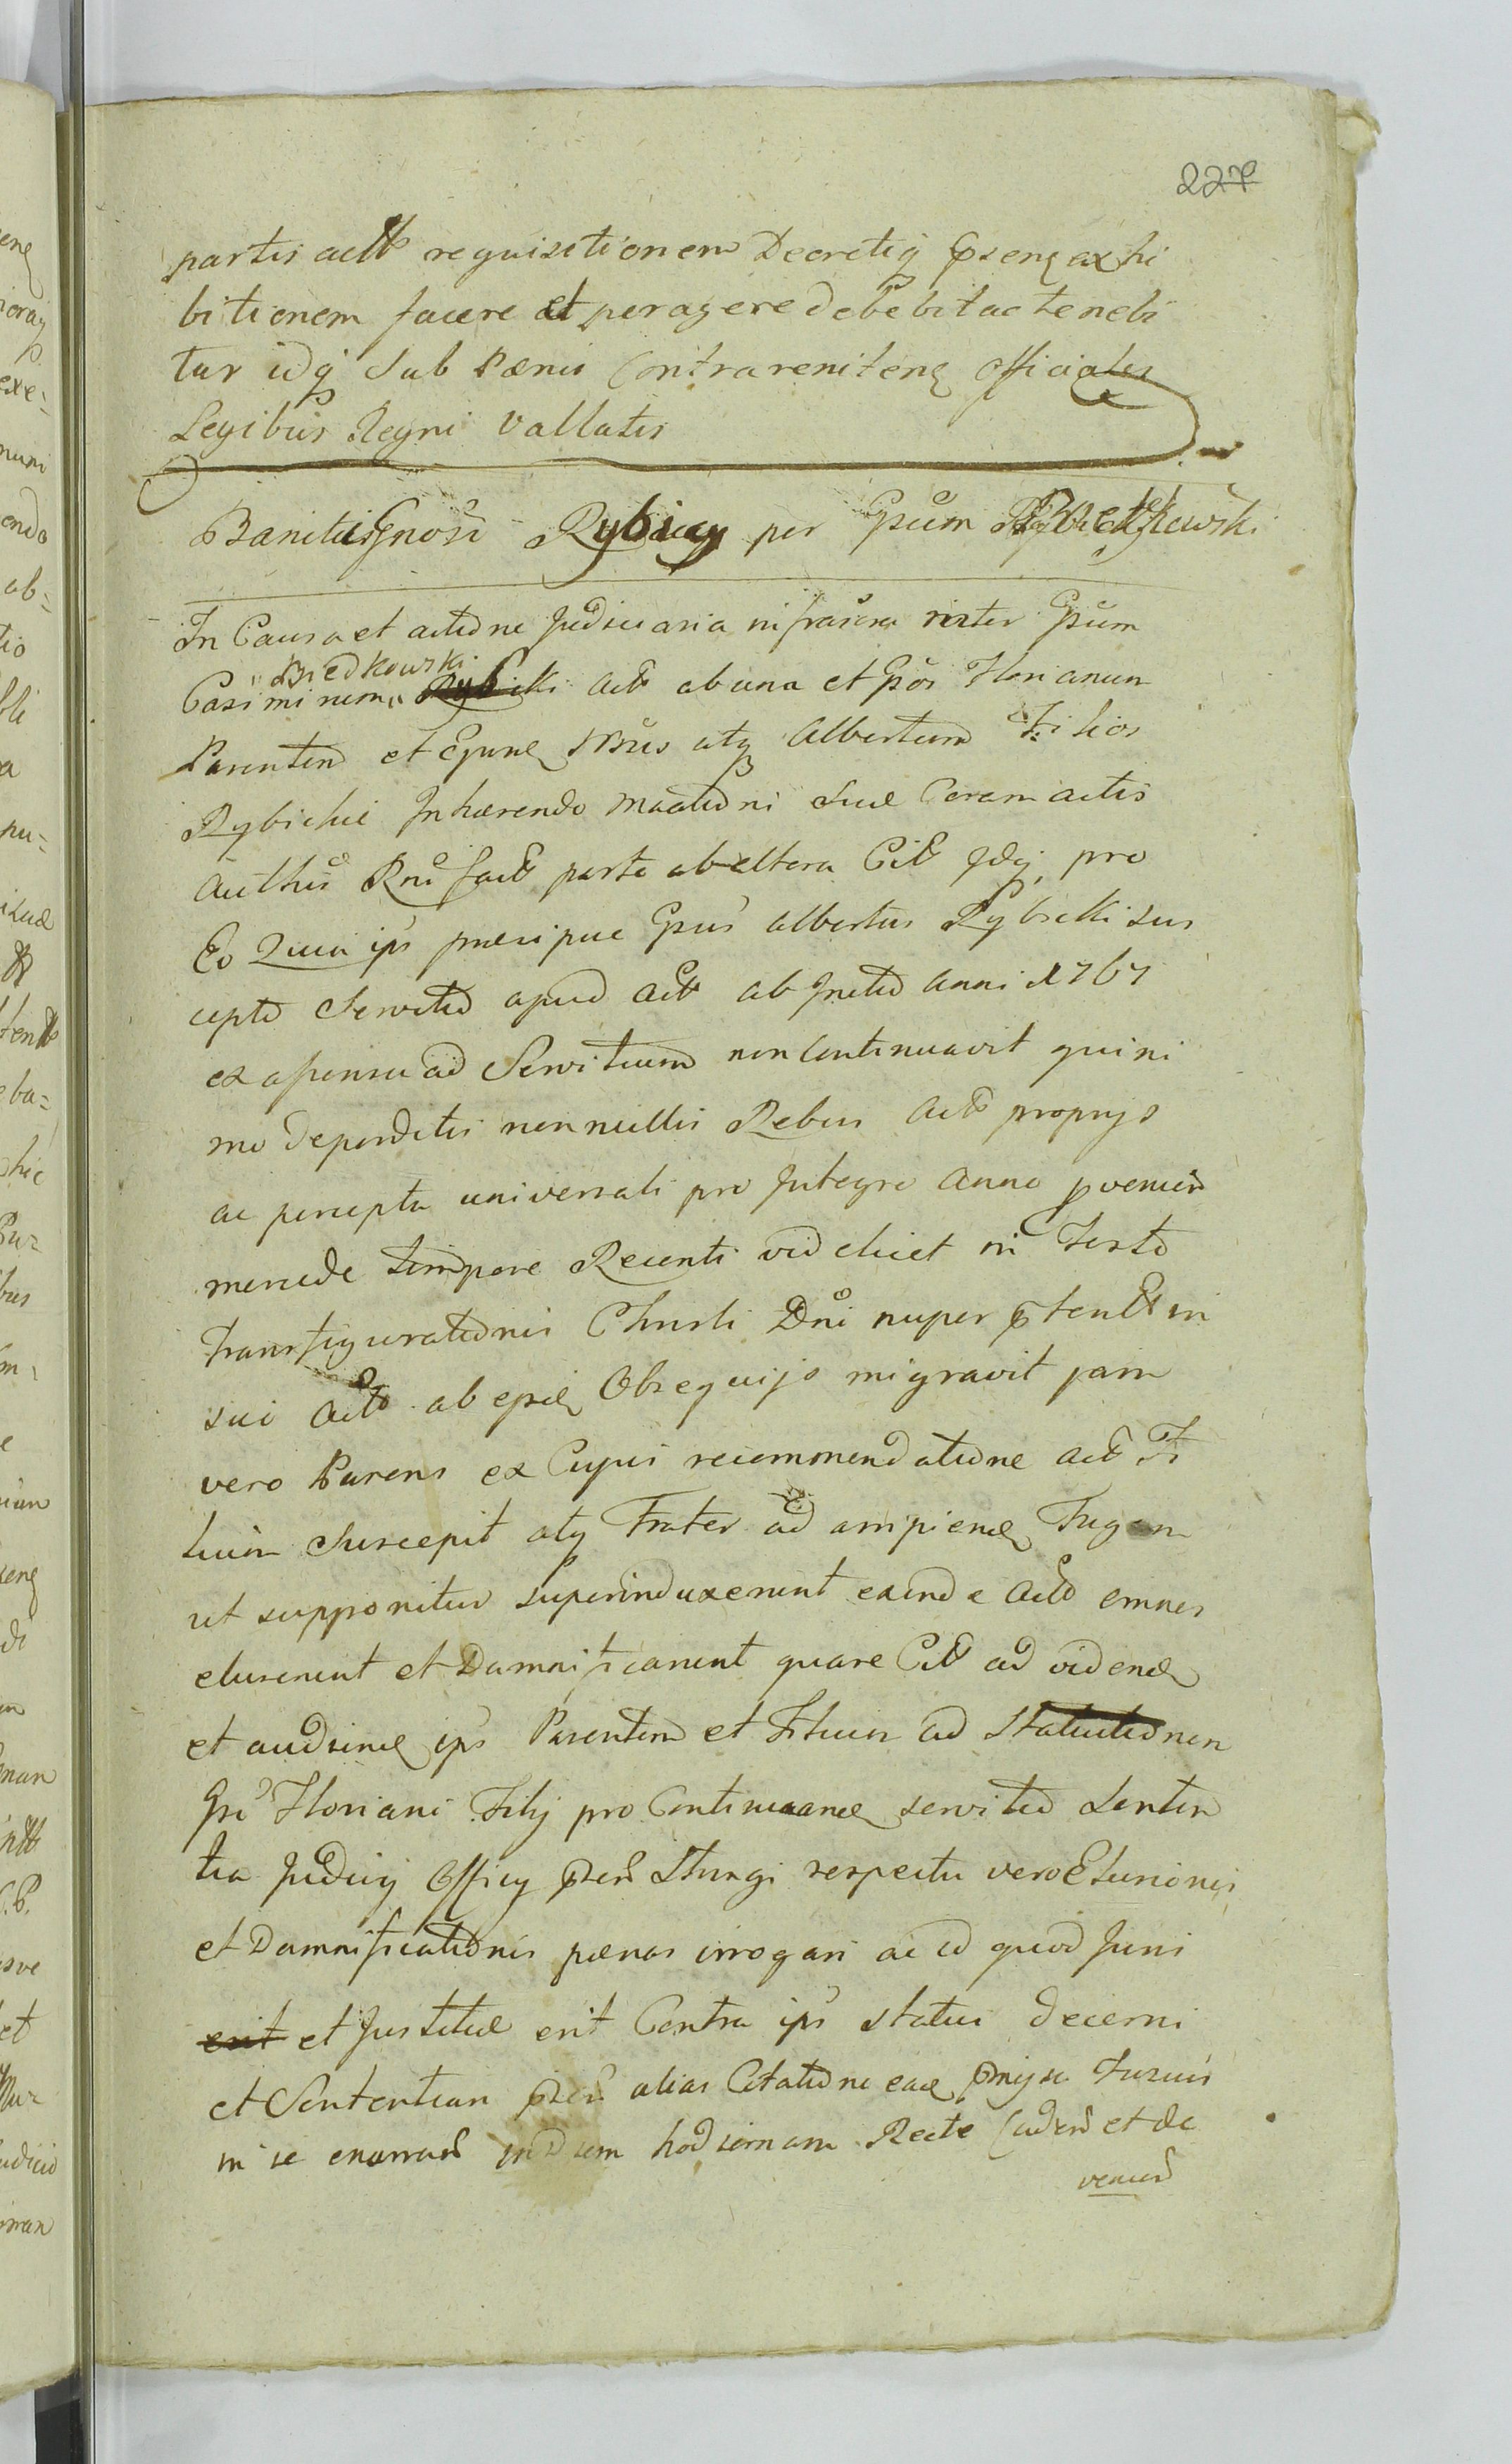 227
partis act requisitionem Decretiq pseng exhi
bitionem facere et peragere debebit ac tenebi
tur idq Sub Pænis Contraveniteng officiales
Legibus Regni vallatis
Banitis Gnosi Rybicy per Gsum Biedkowski
In Causa et actione Judiciaria infrascra inter Gsum
Biedkowski
Casimirum Rybicki Act ab una et Gsos Florianum
Parentem et Ejusq Nrus atq Albertum Filios
Rybickie Inhærendo mactioni suæ Coram actis
Authis Rni fact parte ab altera Cit Idq pro
Eo Quia ips præcipue Gsus Albertus Rybicki sus
cepto Servitio apud Act ab Initio Anni 1767
ex asπensu ad Servitium non continuavit quini
mo deperditis nonnullis Rebus Act proprijs
ac percepta universali pro Integro Anno proveniend
mercede tempore Recenti videlicet in Festo
Transfigurationis Christi Dni nuper ptent in
sui Act ab ejsq Obsequijs migravit jam
vero Parens ex Cujus recommendatione Act Fi
lium suscepit atq Frater ad arripiend Fugam
ut supponitur superinduxerunt exinde Act omnes
eluserunt et Damnificarunt quare Cit ad vidend
et audiend ips Parentem et Filium ad Statutionem
Gsi Floriani Filij pro Continuand servitio Senten
tia Judicij Officij psen Stringi respectu vero Elusionis
et Damnificationis pænas irrogari ac id quod Juris
erit et Justitiæ erit Contra ips statui decerni
et Sententiam psen alias Citatione eaq pmissa fusius
in se enarran in Diem hodiernam Recte Caden et de
venien